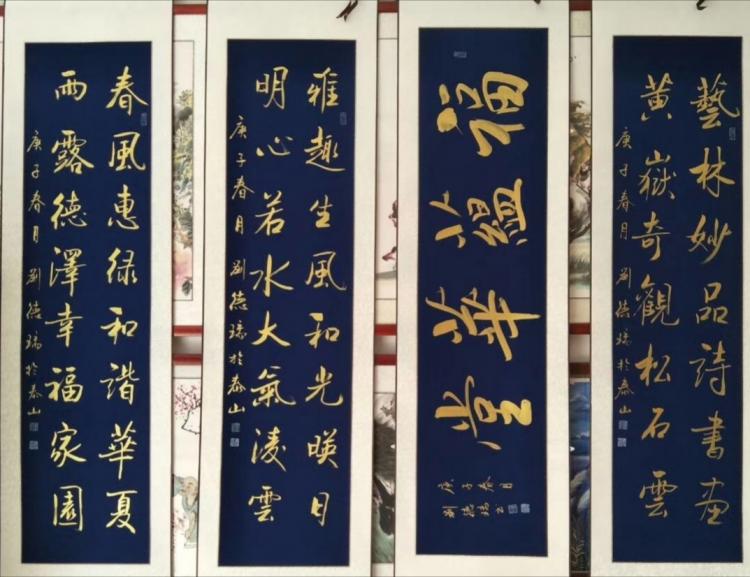 藝林妙品詩書畫
黄嶽奇觀松石雲
庚子春月 劉德瑞於泰山
福蘊華堂
庚子春月
劉德瑞書
雅趣生風和光暎日
明心若水大氣凌雲
庚子春月 劉德瑞於泰山
春風惠绿和諧華夏
雨露德澤幸福家園
庚子春月 劉德瑞於泰山